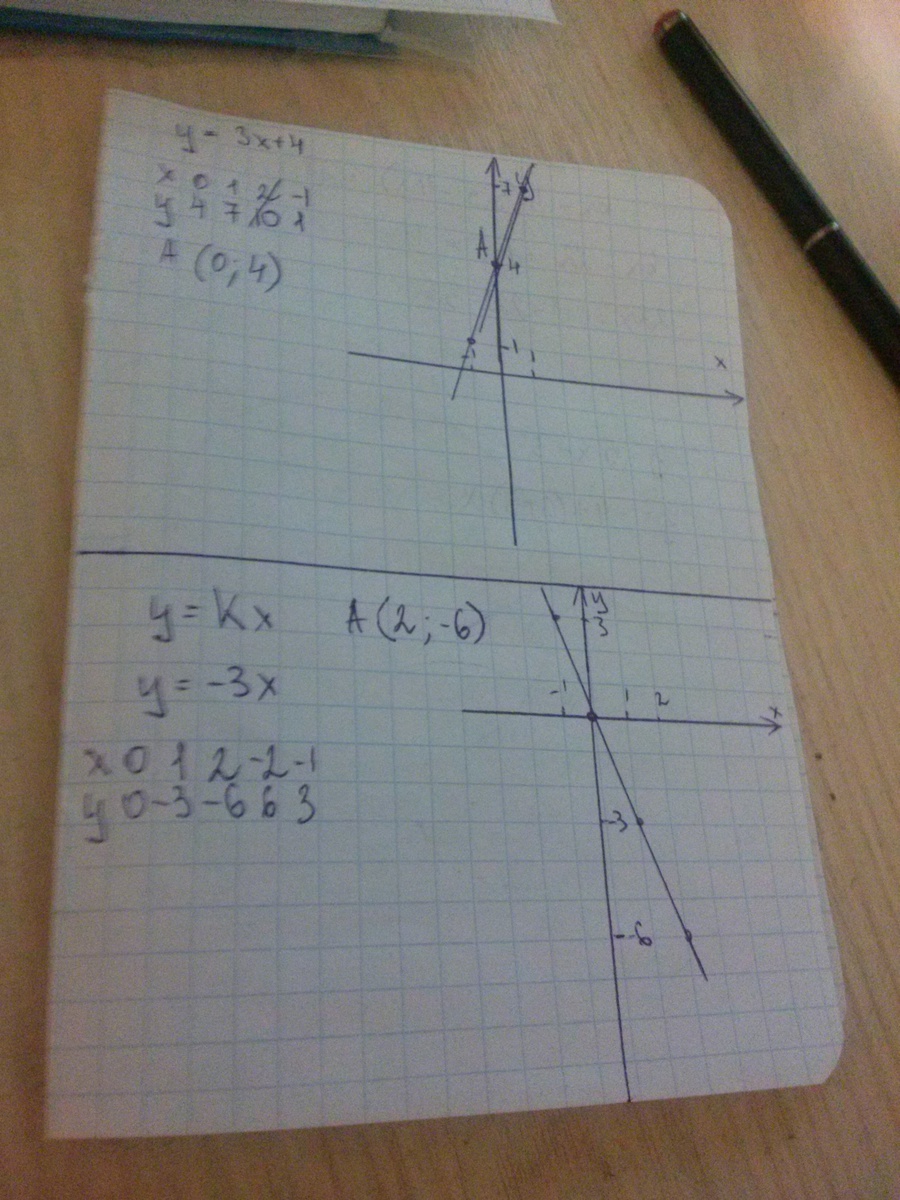 y = 3x+4
x 0 1 2 -1
y 4 7 10 1
A (0; 4)
y
7
A
4
1
-1
1
x
y = kx A(2; -6)
y = -3x
x 0 1 2 -2 -1
y 0 -3 -6 6 3
y
3
-1
1
2
x
-3
-6